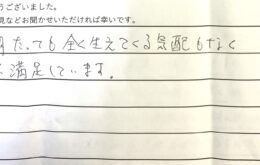 うございました。
見などお聞かせいただければ幸いです。
月たっても全く生えてくる気配もなく
満足しています。